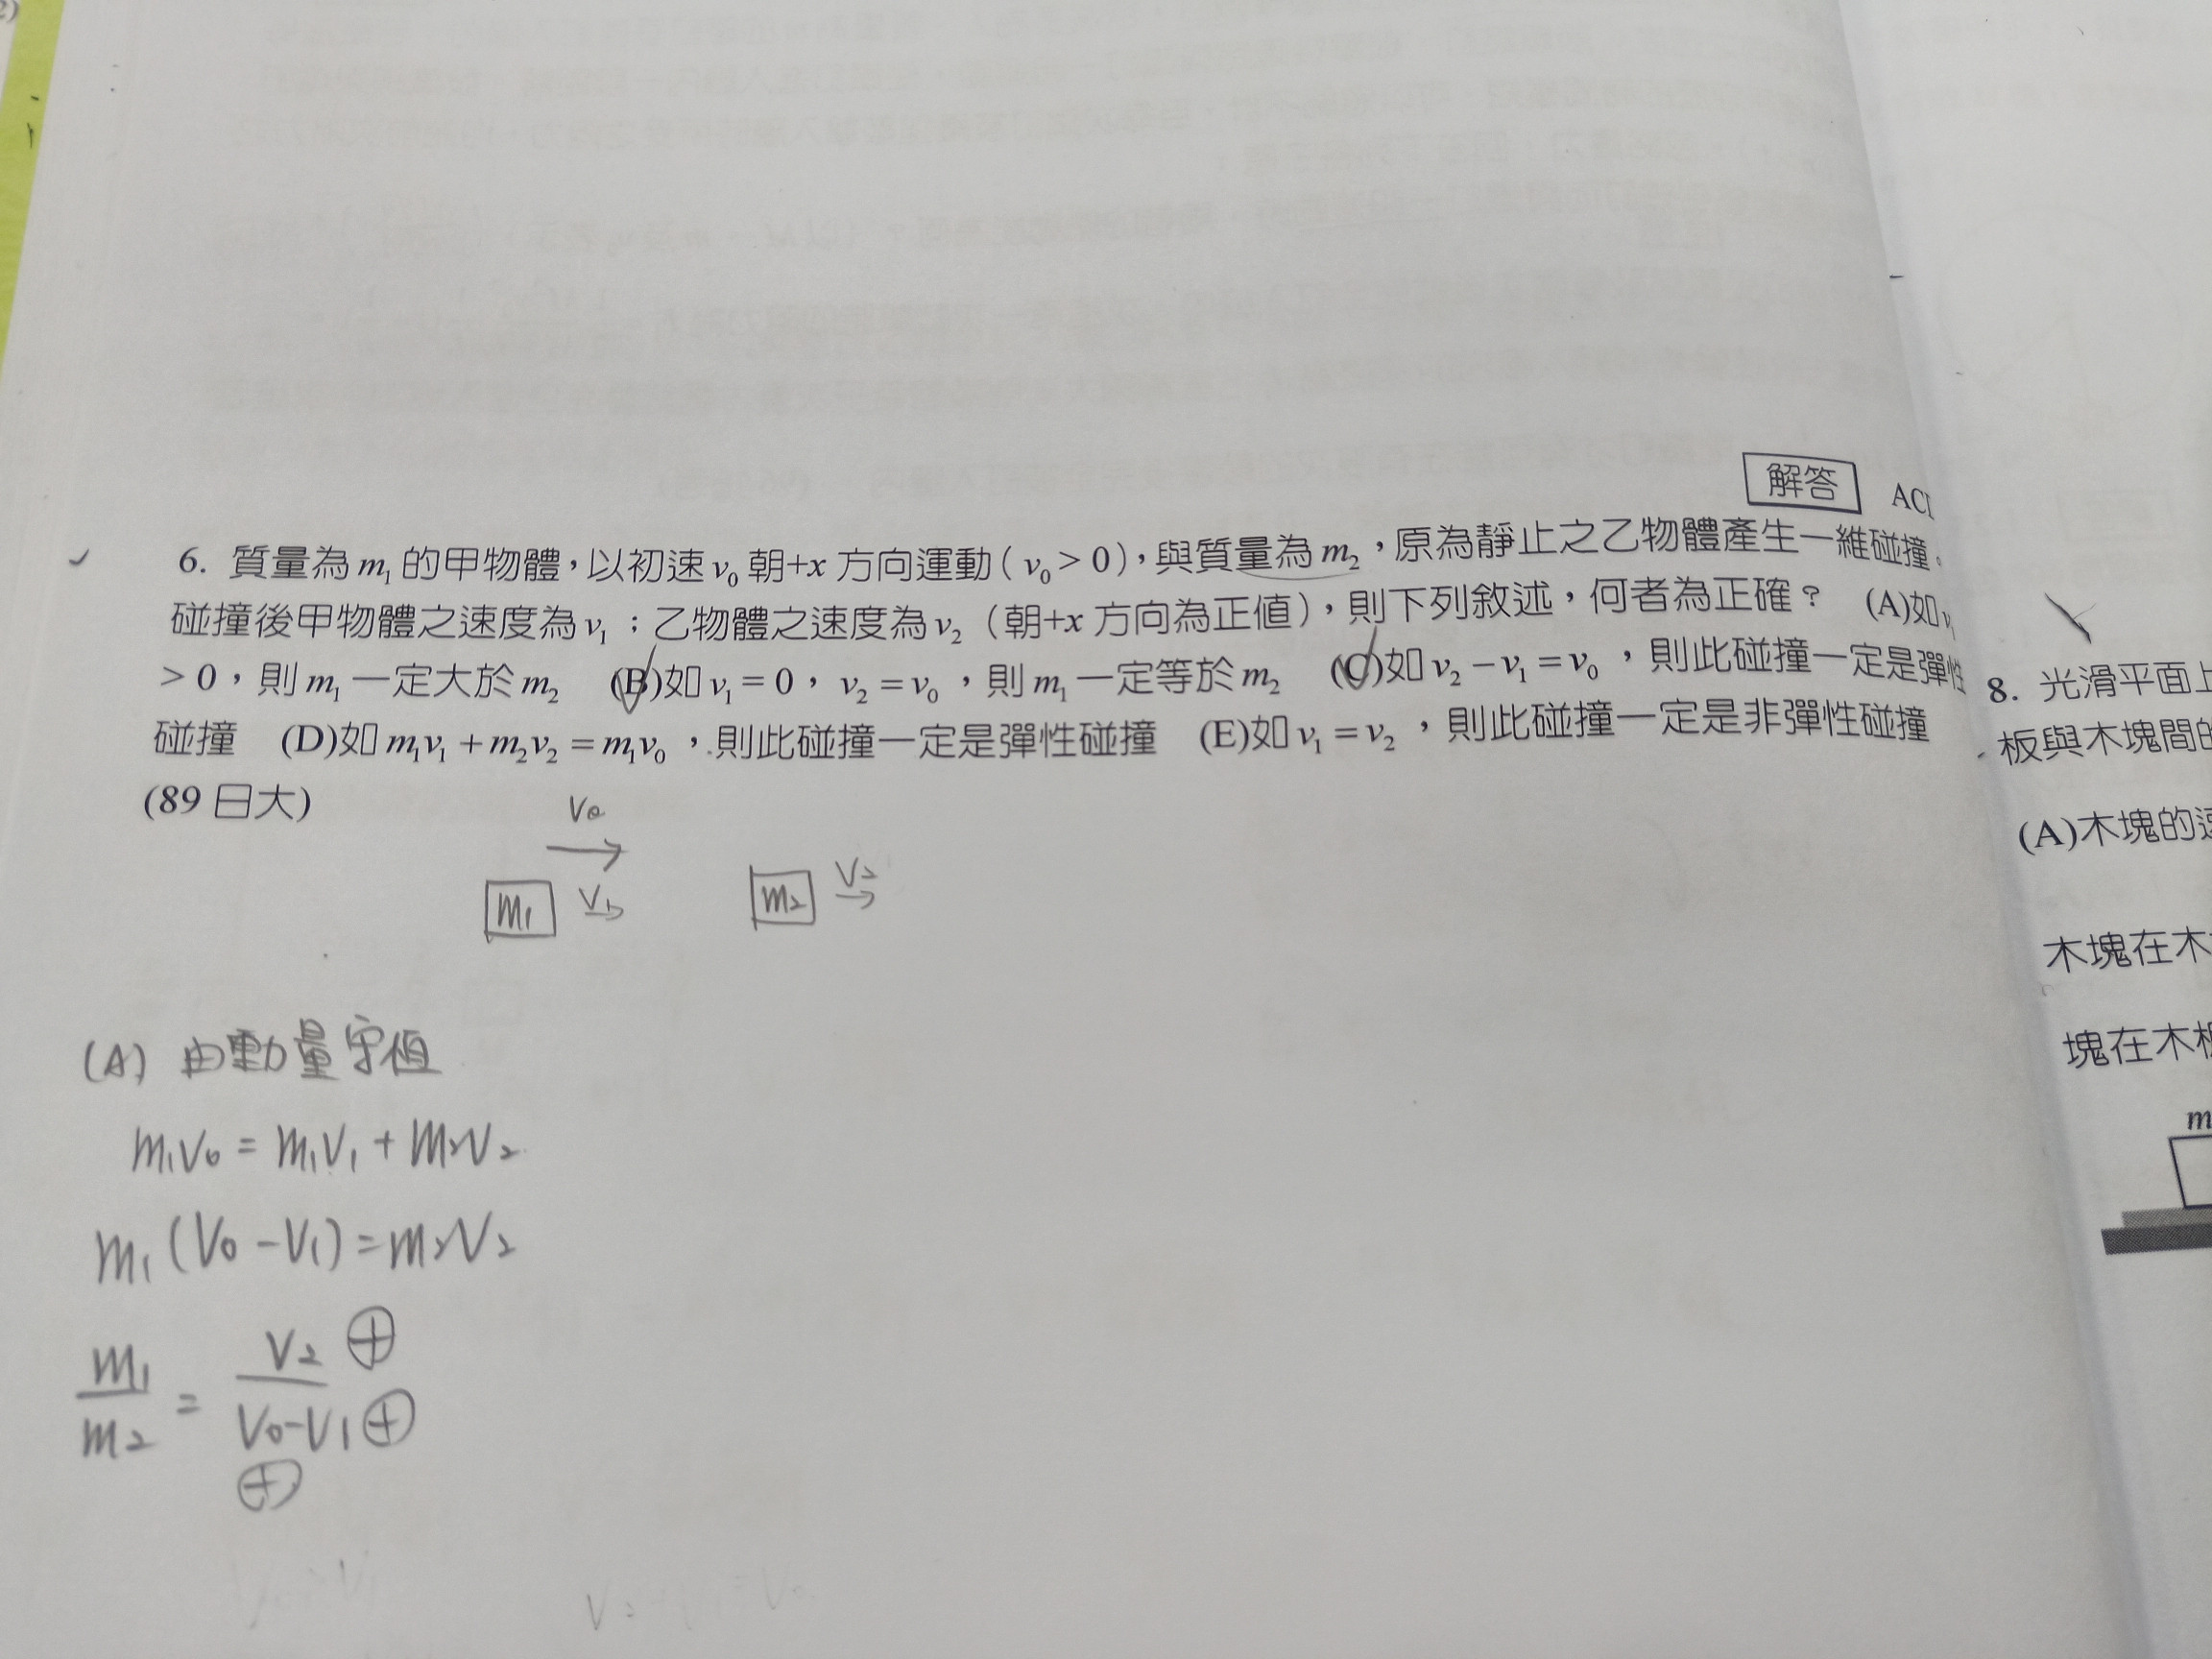 解答 AC
6. 質量為 m₁ 的甲物體，以初速 v₀ 朝+x 方向運動（v₀ > 0），與質量為 m₂，原為靜止之乙物體產生一維碰撞。
碰撞後甲物體之速度為 v₁；乙物體之速度為 v₂（朝+x 方向為正值），則下列敘述，何者為正確？ (A)如 v₁
> 0，則 m₁ 一定大於 m₂ (B)如 v₁ = 0，v₂ = v₀，則 m₁ 一定等於 m₂ (C)如 v₂ − v₁ = v₀，則此碰撞一定是彈性
碰撞 (D)如 m₁v₁ + m₂v₂ = m₁v₀，則此碰撞一定是彈性碰撞 (E)如 v₁ = v₂，則此碰撞一定是非彈性碰撞
(89 日大)
V₀
m₁ V₁ m₂ V₂
(A) 由動量守恆
m₁V₀ = m₁V₁ + m₂V₂
m₁(V₀ − V₁) = m₂V₂
m₁/m₂ = V₂ ⊕ / V₀−V₁ ⊕
⊕
8. 光滑平面上
板與木塊間的
(A)木塊的速
木塊在木
塊在木板
m